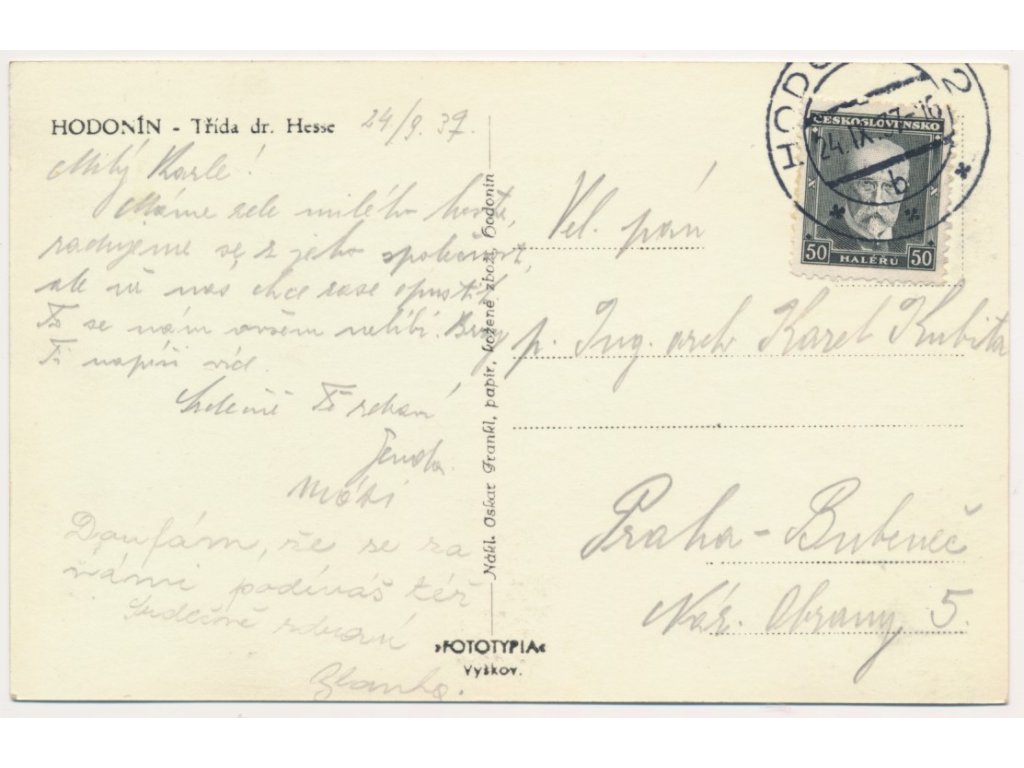 HODONÍN - Třída dr. Hesse
24/9. 37.
Milý Karle!
Máme zde milého hosta,
radujeme se z jeho spokojnosti,
ale už nás chce zase opustit.
To se nám ovšem nelíbí. Brzy
Ti napíši víc.
Srdečně Tě zdraví
Jenda.
Doufám, že se za
námi podíváš též
Srdečně zdraví
Nákl. Oskar Frankl, papír, kožené zboží, Hodonín
»FOTOTYPIA«
Vyškov.
HODO 2
24.IX.37-16
b
ČESKOSLOVENSKO
50 HALÉŘŮ 50
Vel. pán
p. Ing. arch Karel Kubita
Praha - Bubeneč
Náz. Obrany 5.